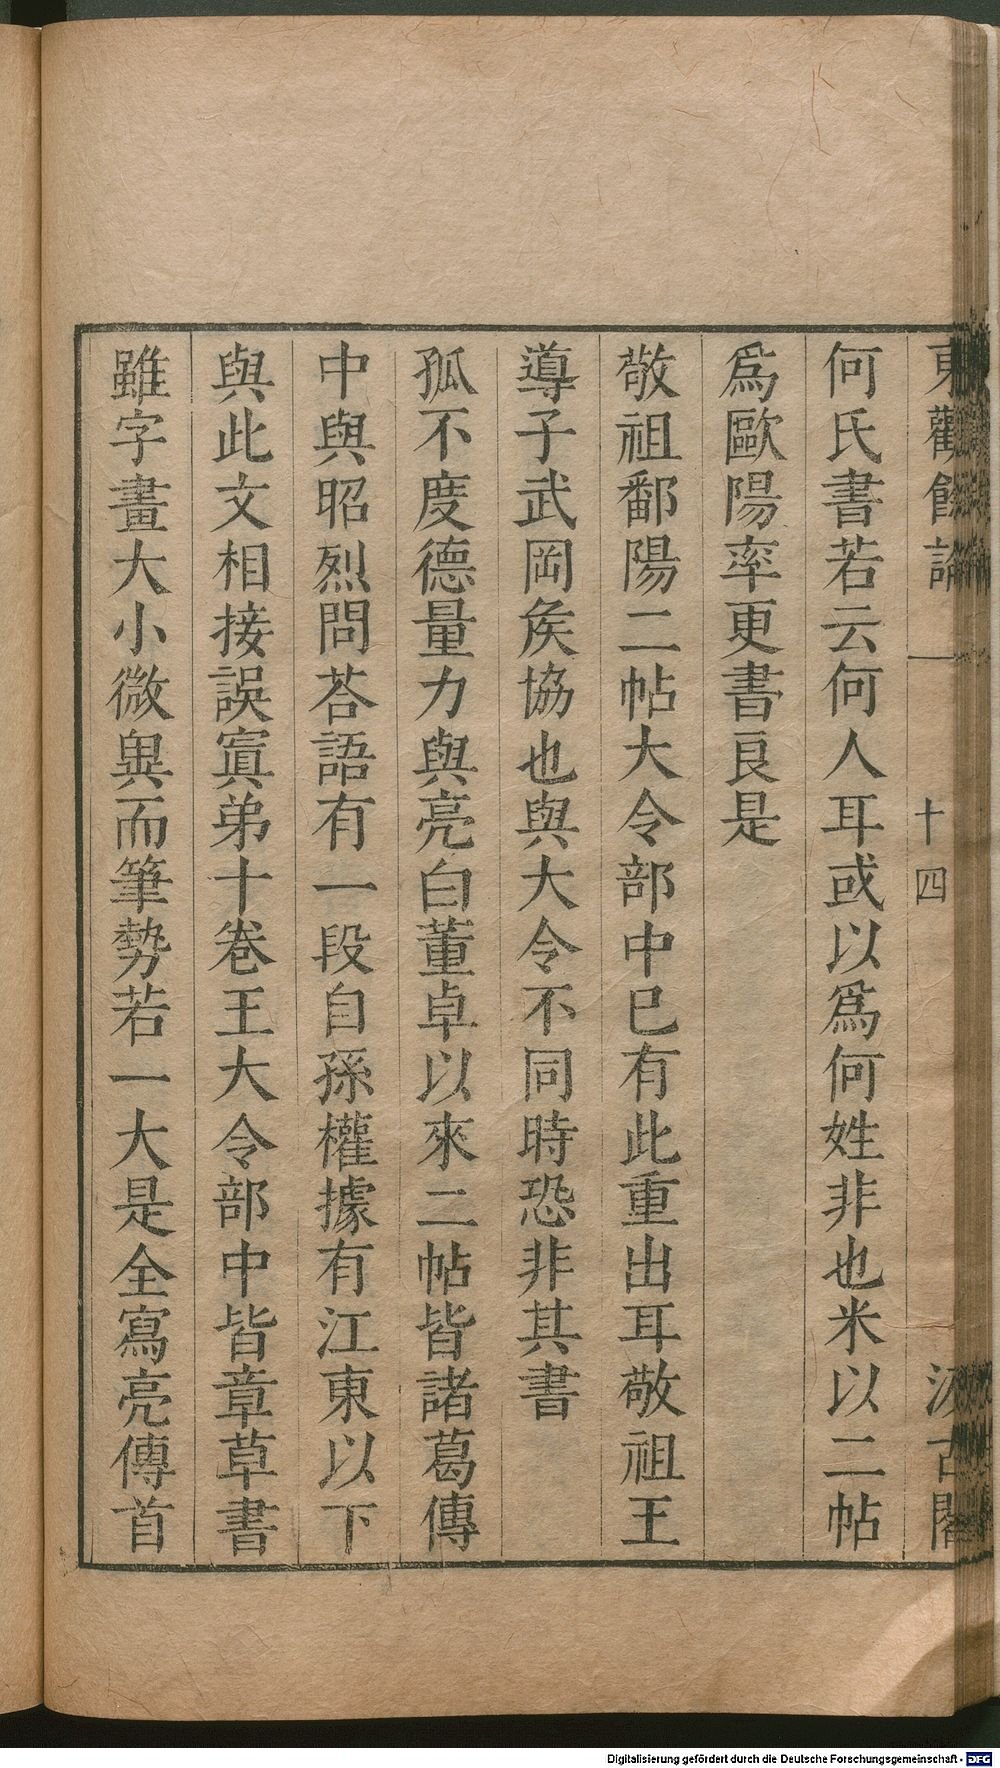 東觀餘論 一 十四 汲古閣
何氏書若云何人耳或以爲何姓非也米以二帖
爲歐陽率更書良是
敬祖鄱陽二帖大令部中已有此重出耳敬祖王
導子武岡矦協也與大令不同時恐非其書
孤不度德量力與亮白董卓以來二帖皆諸葛傳
中與昭烈問荅語有一段自孫權據有江東以下
與此文相接誤寘弟十卷王大令部中皆章草書
雖字畫大小微異而筆勢若一大是全寫亮傳首
Digitalisierung gefördert durch die Deutsche Forschungsgemeinschaft - DFG